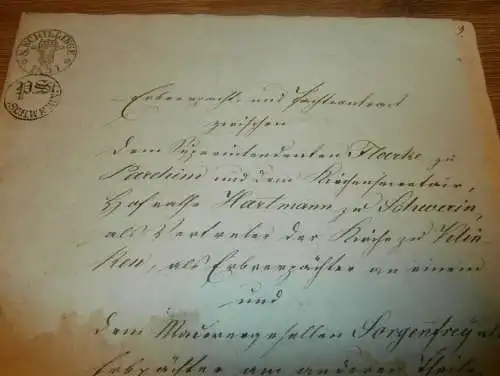 8 SCHILLINGE
P.St.
SCHWERIN
Erbverpacht- und Pachtcontract
zwischen
dem Superintendenten Floerke zu
Parchim und dem Kirchensecretair,
Hofrathe Hartmann zu Schwerin,
als Vertreter der Kirche zu Klin-
ken, als Erbverpächter an einem
und
dem Maurergesellen Sorgenfrey als
Erbpächter am anderen Theile